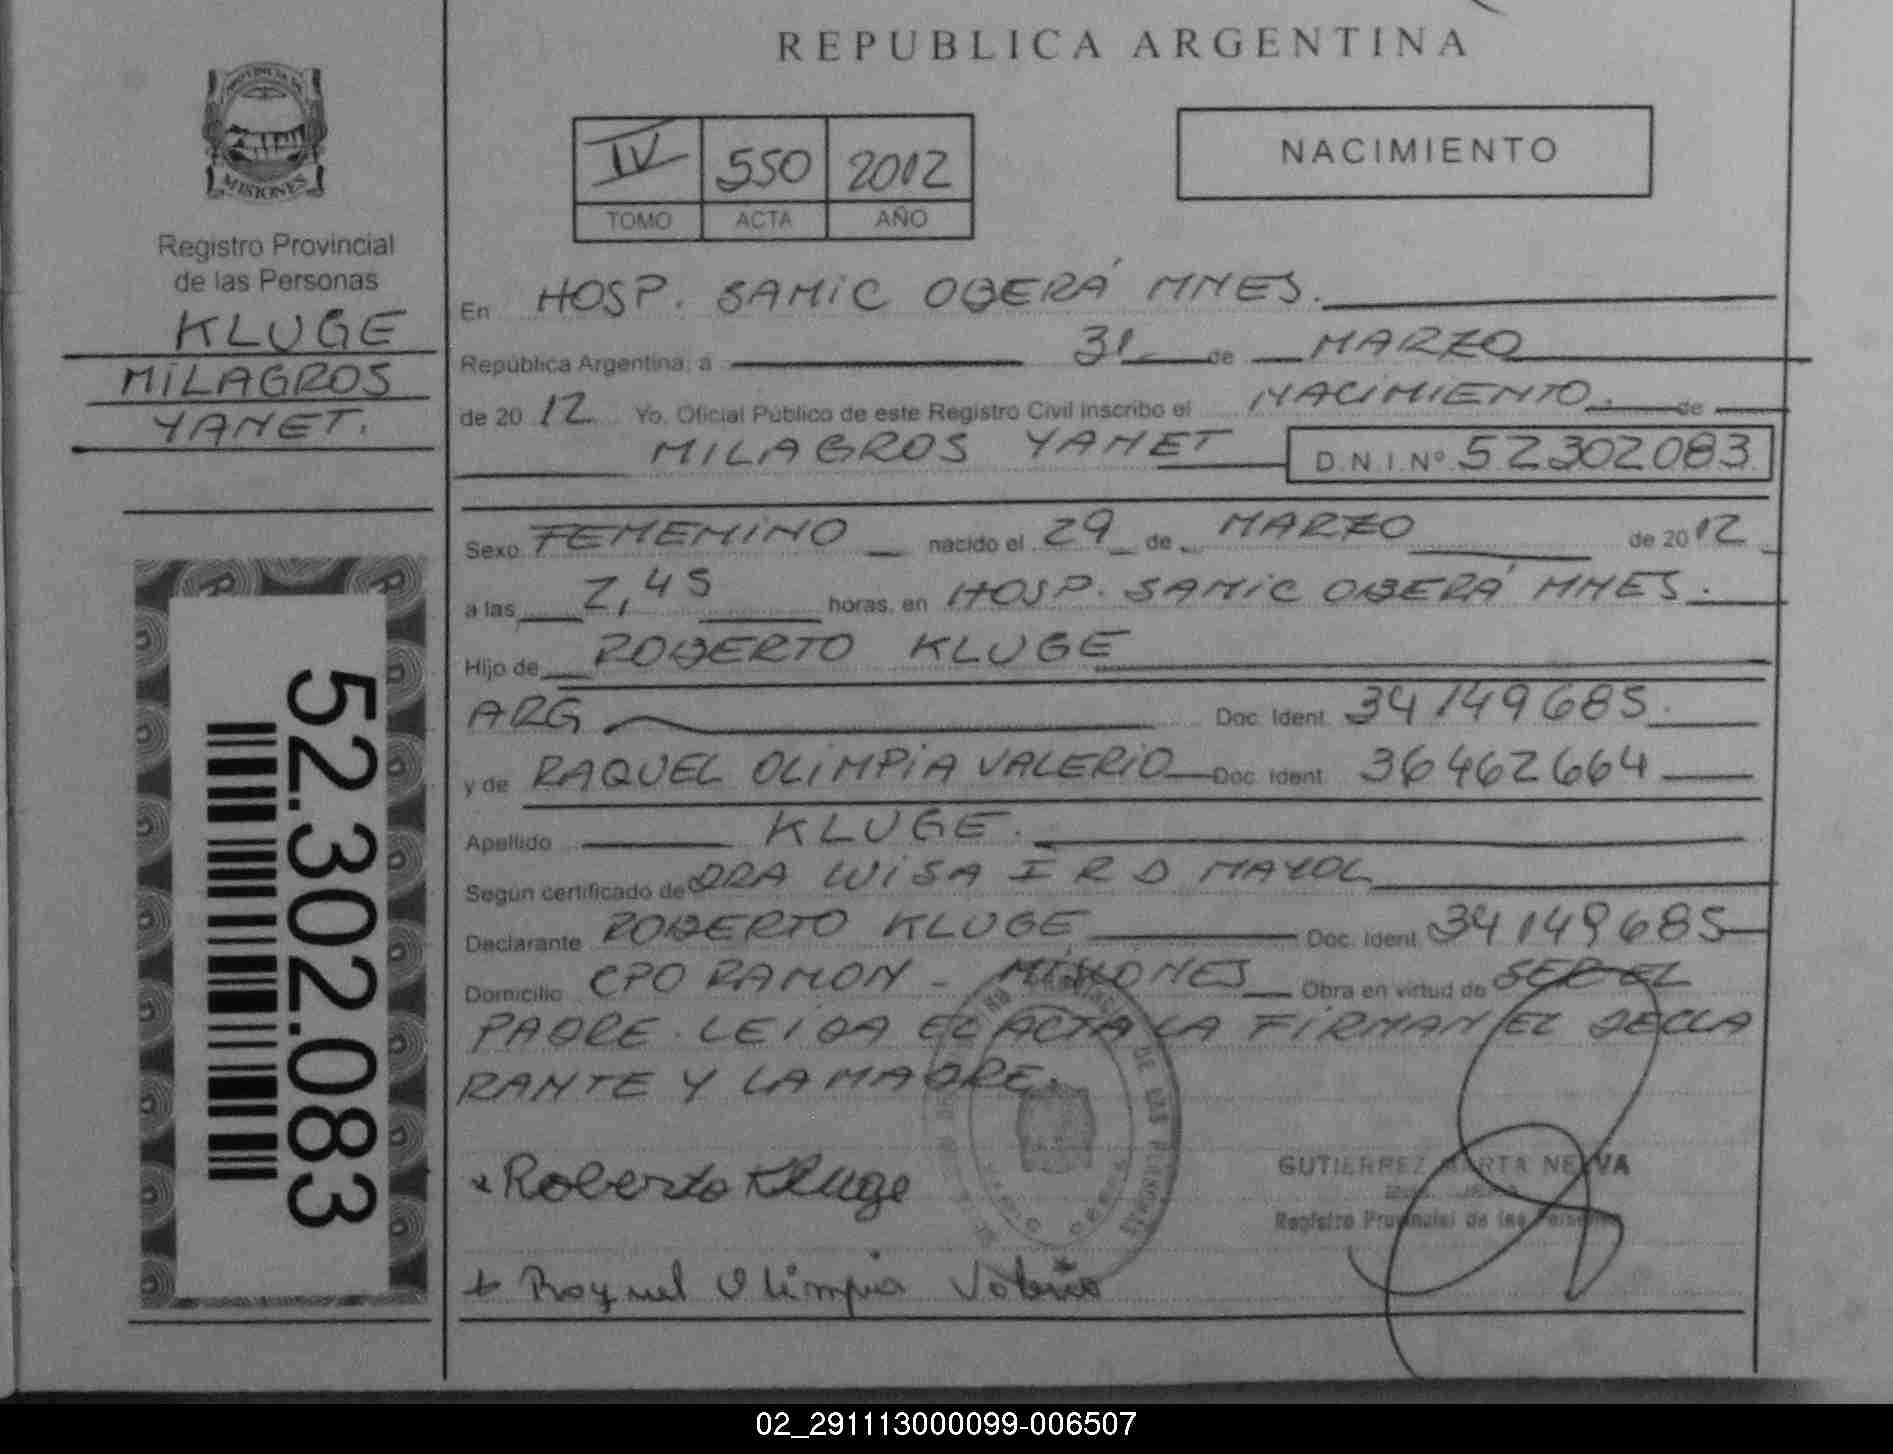 REPUBLICA ARGENTINA
PROVINCIA DE
MISIONES
Registro Provincial
de las Personas
KLUGE
MILAGROS
YANET.
52.302.083
IV 550 2012
TOMO ACTA AÑO
NACIMIENTO
En HOSP. SAMIC OBERÁ MNES.
República Argentina, a 31 de MARZO
de 20 12 Yo, Oficial Público de este Registro Civil inscribo el NACIMIENTO. de
MILAGROS YANET D.N.I. Nº 52302083
Sexo FEMENINO nacido el 29 de MARZO de 20 12
a las 7,45 horas, en HOSP. SAMIC OBERÁ MNES.
Hijo de ROBERTO KLUGE
ARG Doc. Ident. 34149685.
y de RAQUEL OLIMPIA VALERIO Doc. Ident. 36462664
Apellido KLUGE.
Según certificado de DRA LUISA I R D MAYOL
Declarante ROBERTO KLUGE Doc. Ident. 34149685
Domicilio CPO RAMON - MISIONES Obra en virtud de SER EL
PADRE. LEIDA EL ACTA LA FIRMAN EL DECLA
RANTE Y LA MADRE.
Roberto Kluge
Raquel Olimpia Valerio
DE LAS PERSONAS
GUTIERREZ MARTA
Registro Provincial de las Personas
02_291113000099-006507